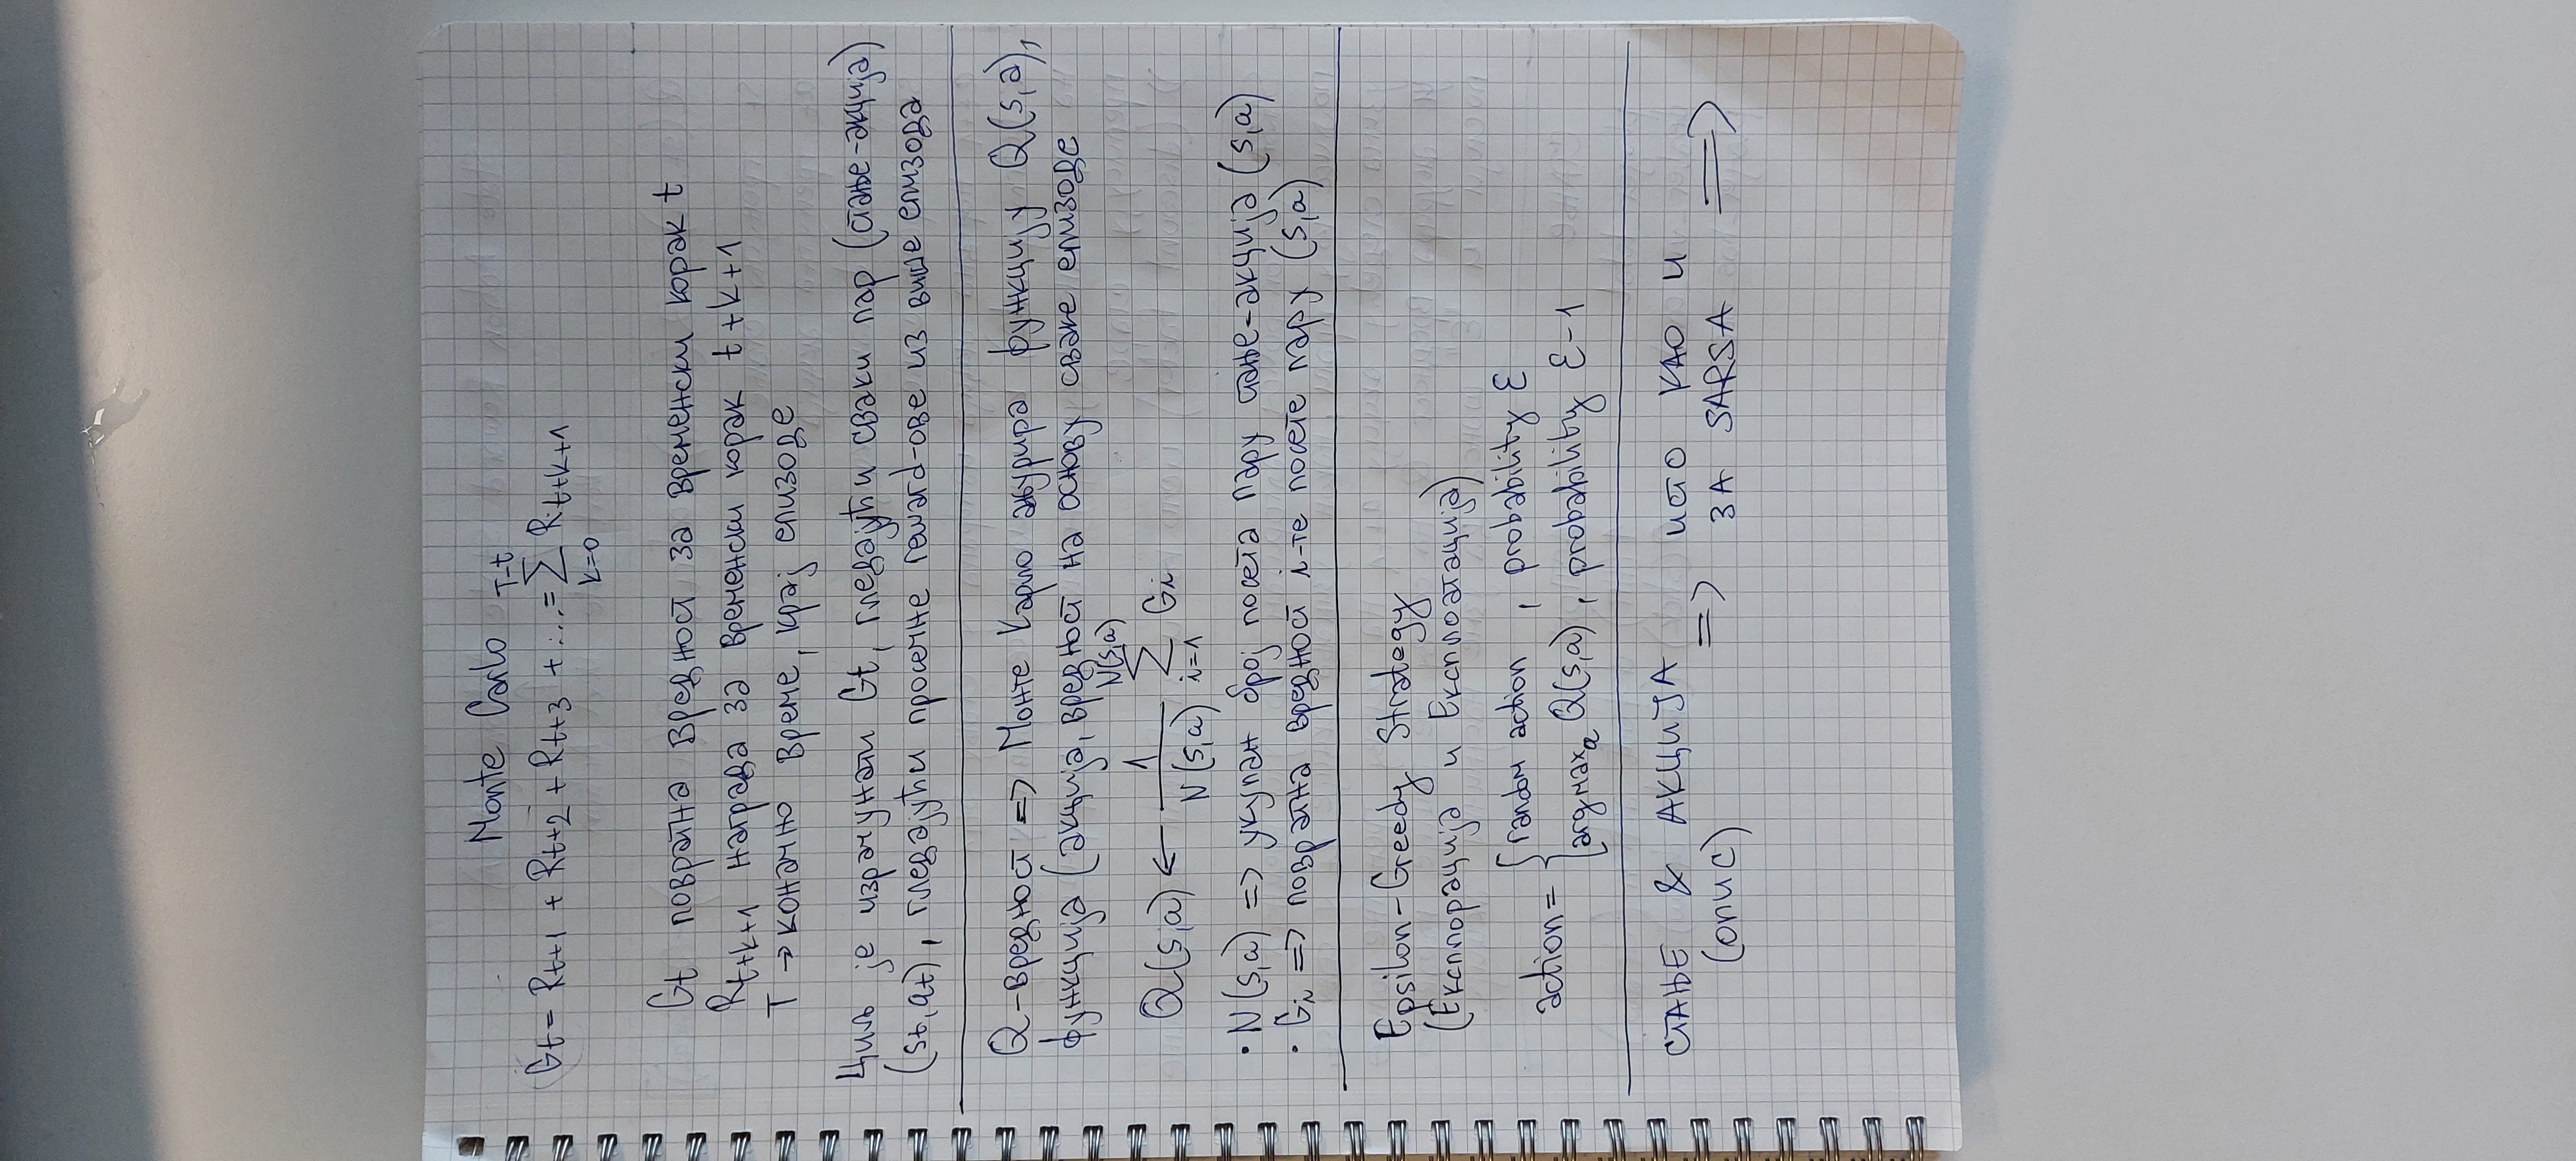 Monte Carlo
Gt = Rt+1 + Rt+2 + Rt+3 + ... = T-t ∑ k=0 Rt+k+1
Gt повратна вредност за временски корак t
Rt+k+1 награда за временски корак t+k+1
T → коначно време, крај епизоде
Циљ је израчунати Gt, гледајући сваки пар (стање-акција)
(st, at), гледајући просечне reward-ове из више епизода
Q-вредност => Монте Карло ажурира функцију Q(s,a),
функција (акција, вредност на основу сваке епизоде
Q(s,a) ← 1/N(s,a) N(s,a) ∑ i=1 Gi
• N(s,a) => укупан број посета пару стање-акција (s,a)
• Gi => повратна вредност i-те посете пару (s,a)
Epsilon-Greedy Strategy
(Експлорација и Експлоатација)
action = { random action , probability ε
argmaxa Q(s,a) , probability ε-1
СТАЊЕ & АКЦИЈА => ИСТО КАО И
(опис) ЗА SARSA =>